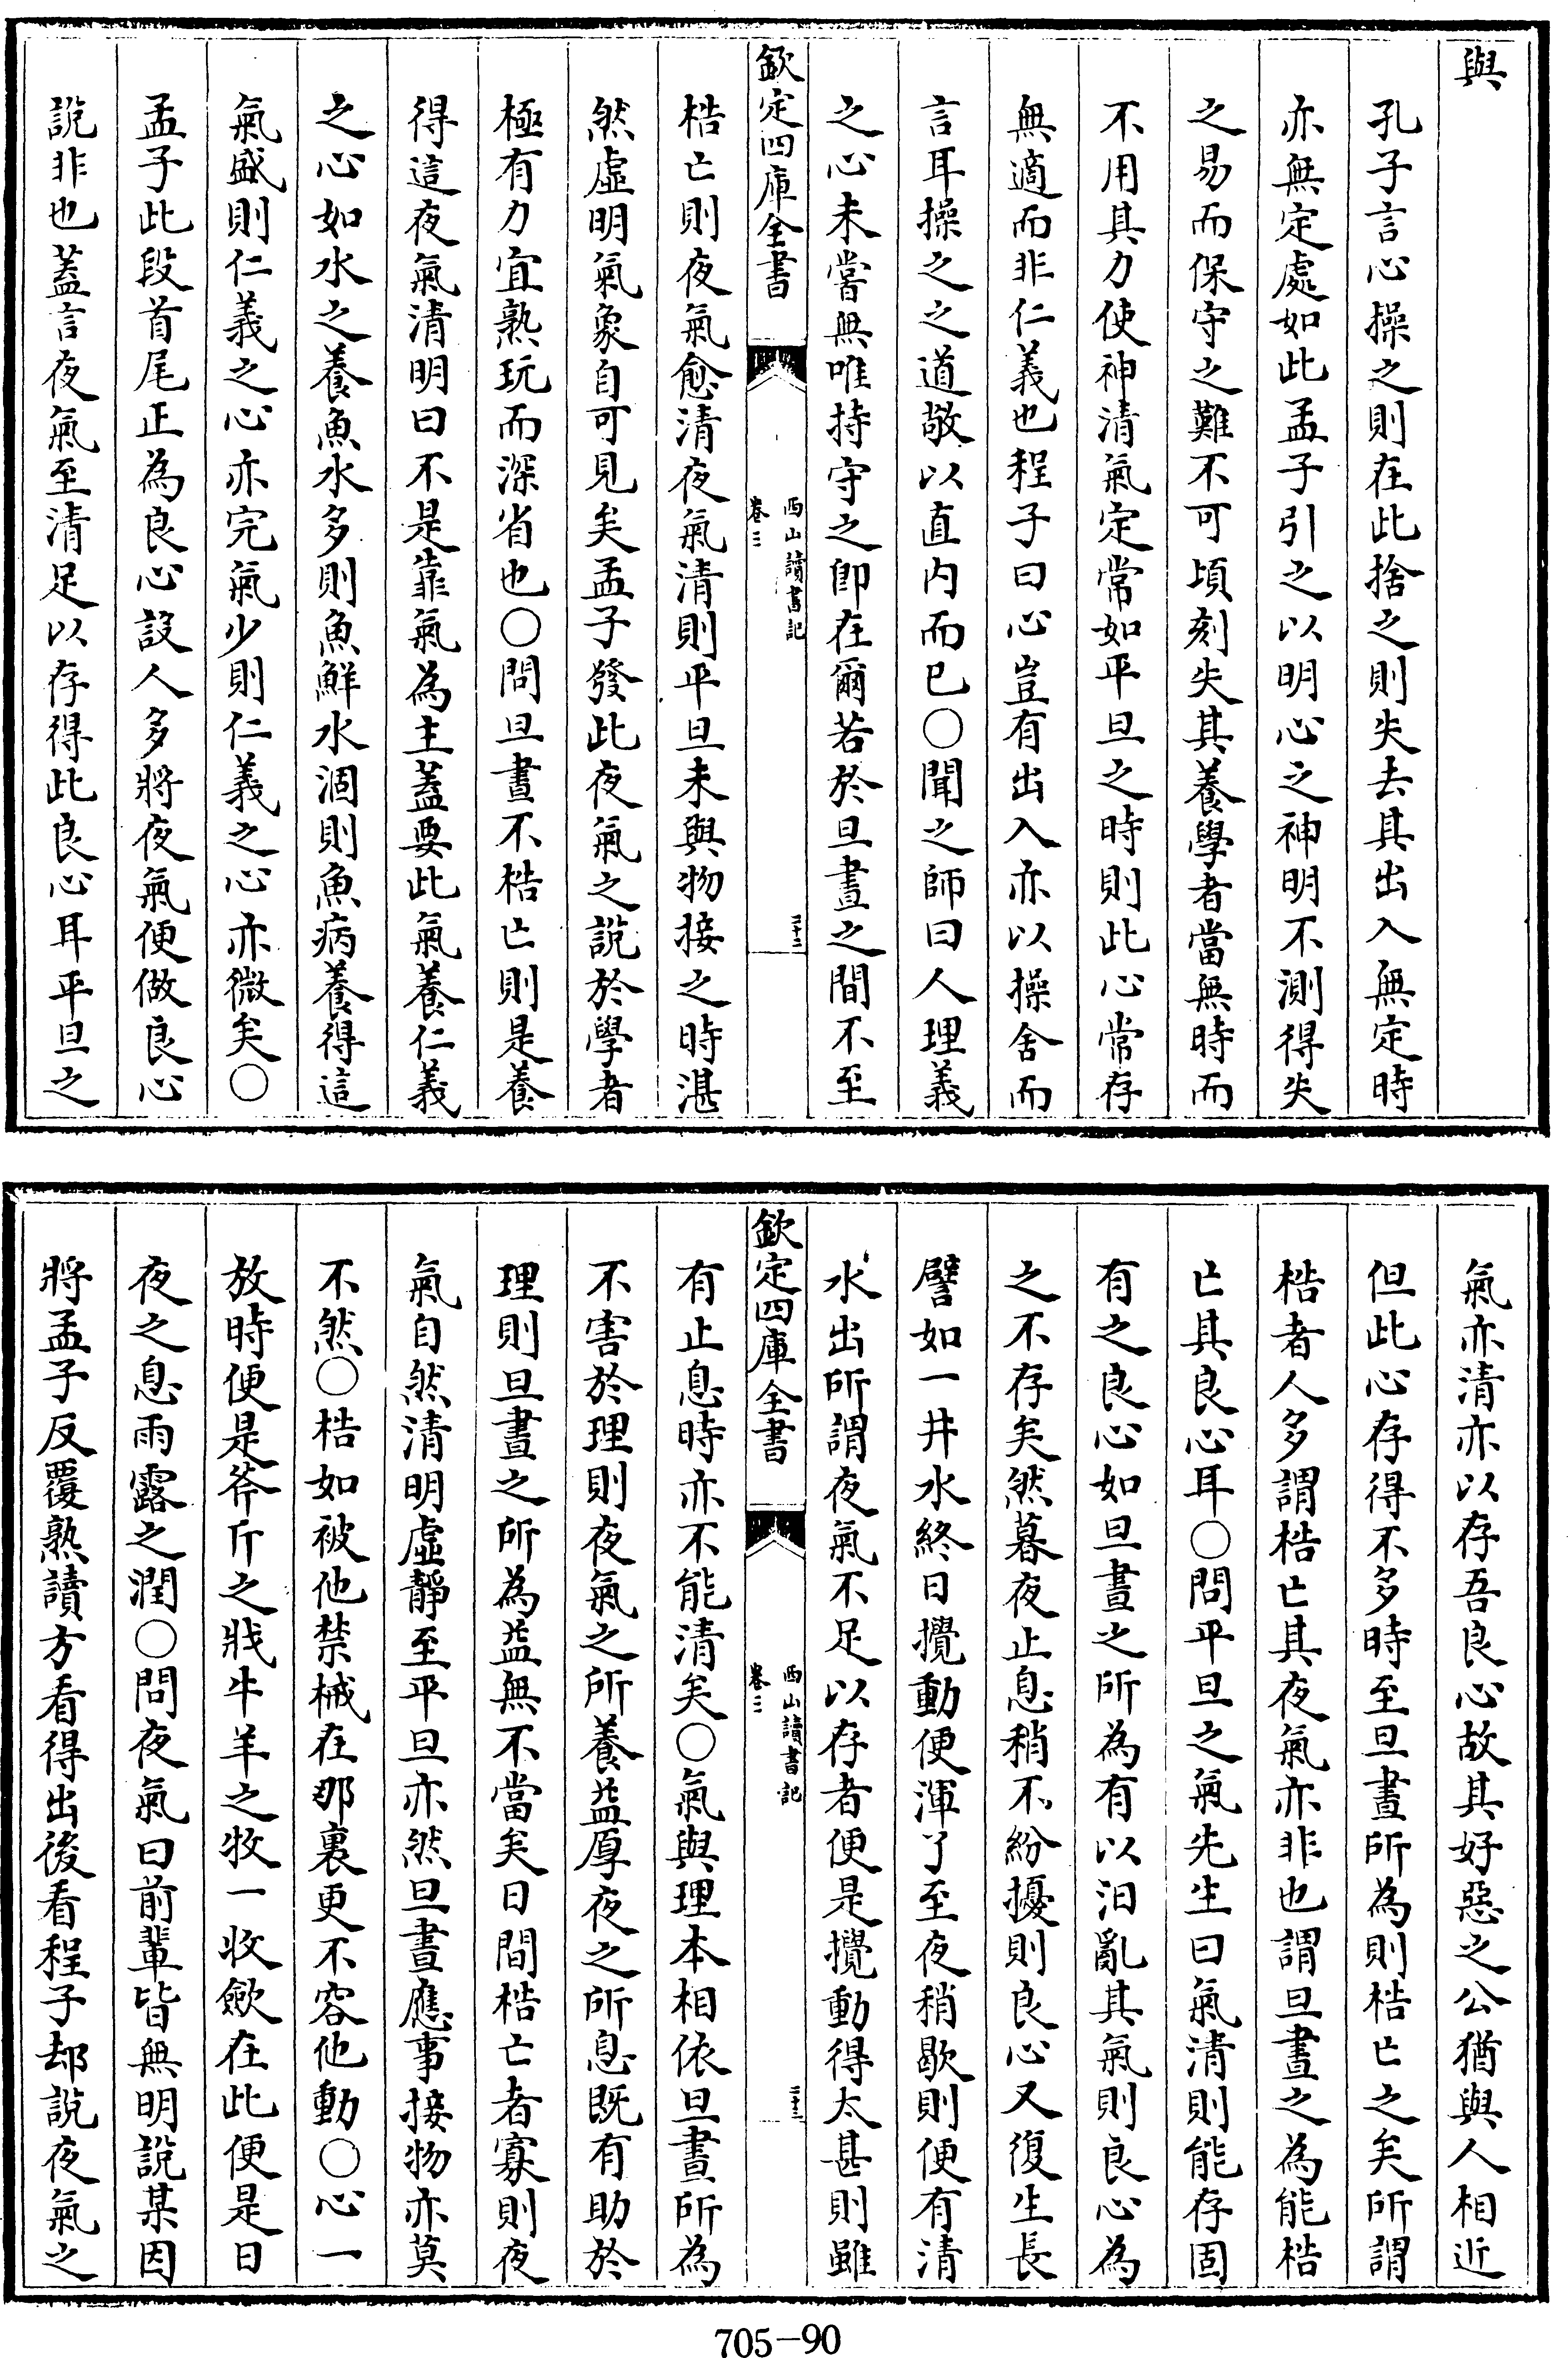 與
孔子言心操之則在此捨之則失去其出入無定時
亦無定處如此孟子引之以明心之神明不測得失
之易而保守之難不可頃刻失其養學者當無時而
不用其力使神清氣定常如平旦之時則此心常存
無適而非仁義也程子曰心豈有出入亦以操舍而
言耳操之之道敬以直内而已○聞之師曰人理義
之心未嘗無唯持守之卽在爾若於旦晝之間不至
欽定四庫全書
西山讀書記
卷三
二十二
梏亡則夜氣愈清夜氣清則平旦未與物接之時湛
然虛明氣象自可見矣孟子發此夜氣之說於學者
極有力宜熟玩而深省也○問旦晝不梏亡則是養
得這夜氣清明曰不是靠氣為主蓋要此氣養仁義
之心如水之養魚水多則魚鮮水涸則魚病養得這
氣盛則仁義之心亦完氣少則仁義之心亦微矣○
孟子此段首尾正為良心設人多將夜氣便做良心
說非也蓋言夜氣至清足以存得此良心耳平旦之
氣亦清亦以存吾良心故其好惡之公猶與人相近
但此心存得不多時至旦晝所為則梏亡之矣所謂
梏者人多謂梏亡其夜氣亦非也謂旦晝之為能梏
亡其良心耳○問平旦之氣先生曰氣清則能存固
有之良心如旦晝之所為有以汨亂其氣則良心為
之不存矣然暮夜止息稍不紛擾則良心又復生長
譬如一井水終日攪動便渾了至夜稍歇則便有清
水出所謂夜氣不足以存者便是攪動得太甚則雖
欽定四庫全書
西山讀書記
卷三
二十三
有止息時亦不能清矣○氣與理本相依旦晝所為
不害於理則夜氣之所養益厚夜之所息既有助於
理則旦晝之所為益無不當矣日間梏亡者寡則夜
氣自然清明虛靜至平旦亦然旦晝應事接物亦莫
不然○梏如被他禁械在那裏更不容他動○心一
放時便是斧斤之戕牛羊之牧一收斂在此便是日
夜之息雨露之潤○問夜氣曰前輩皆無明說某因
將孟子反覆熟讀方看得出後看程子却說夜氣之
705-90